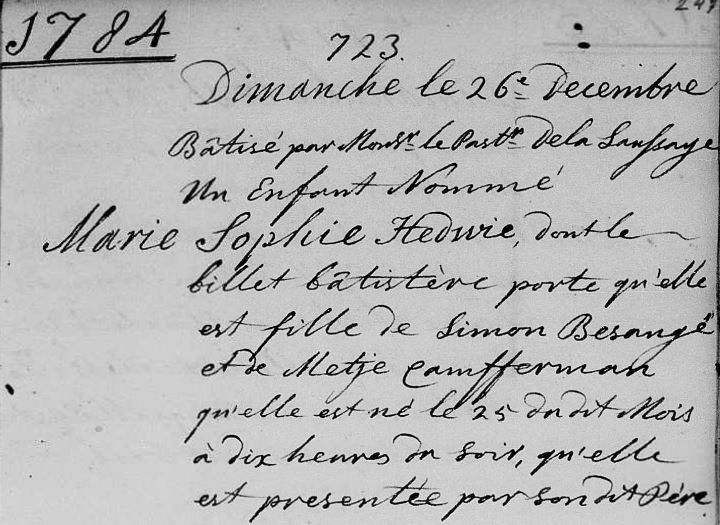 1784
723.
Dimanche le 26e Decembre
Bâtisé par Monsr. le Pastr. De la Saussaye
Un Enfant Nommé
Marie Sophie Hedwie, dont le
billet bâtistère porte qu'elle
est fille de Simon Besangé
et de Metje Camfferman
qu'elle est né le 25 du dit Mois
à dix heures du Soir, qu'elle
est presentée par son dit Père